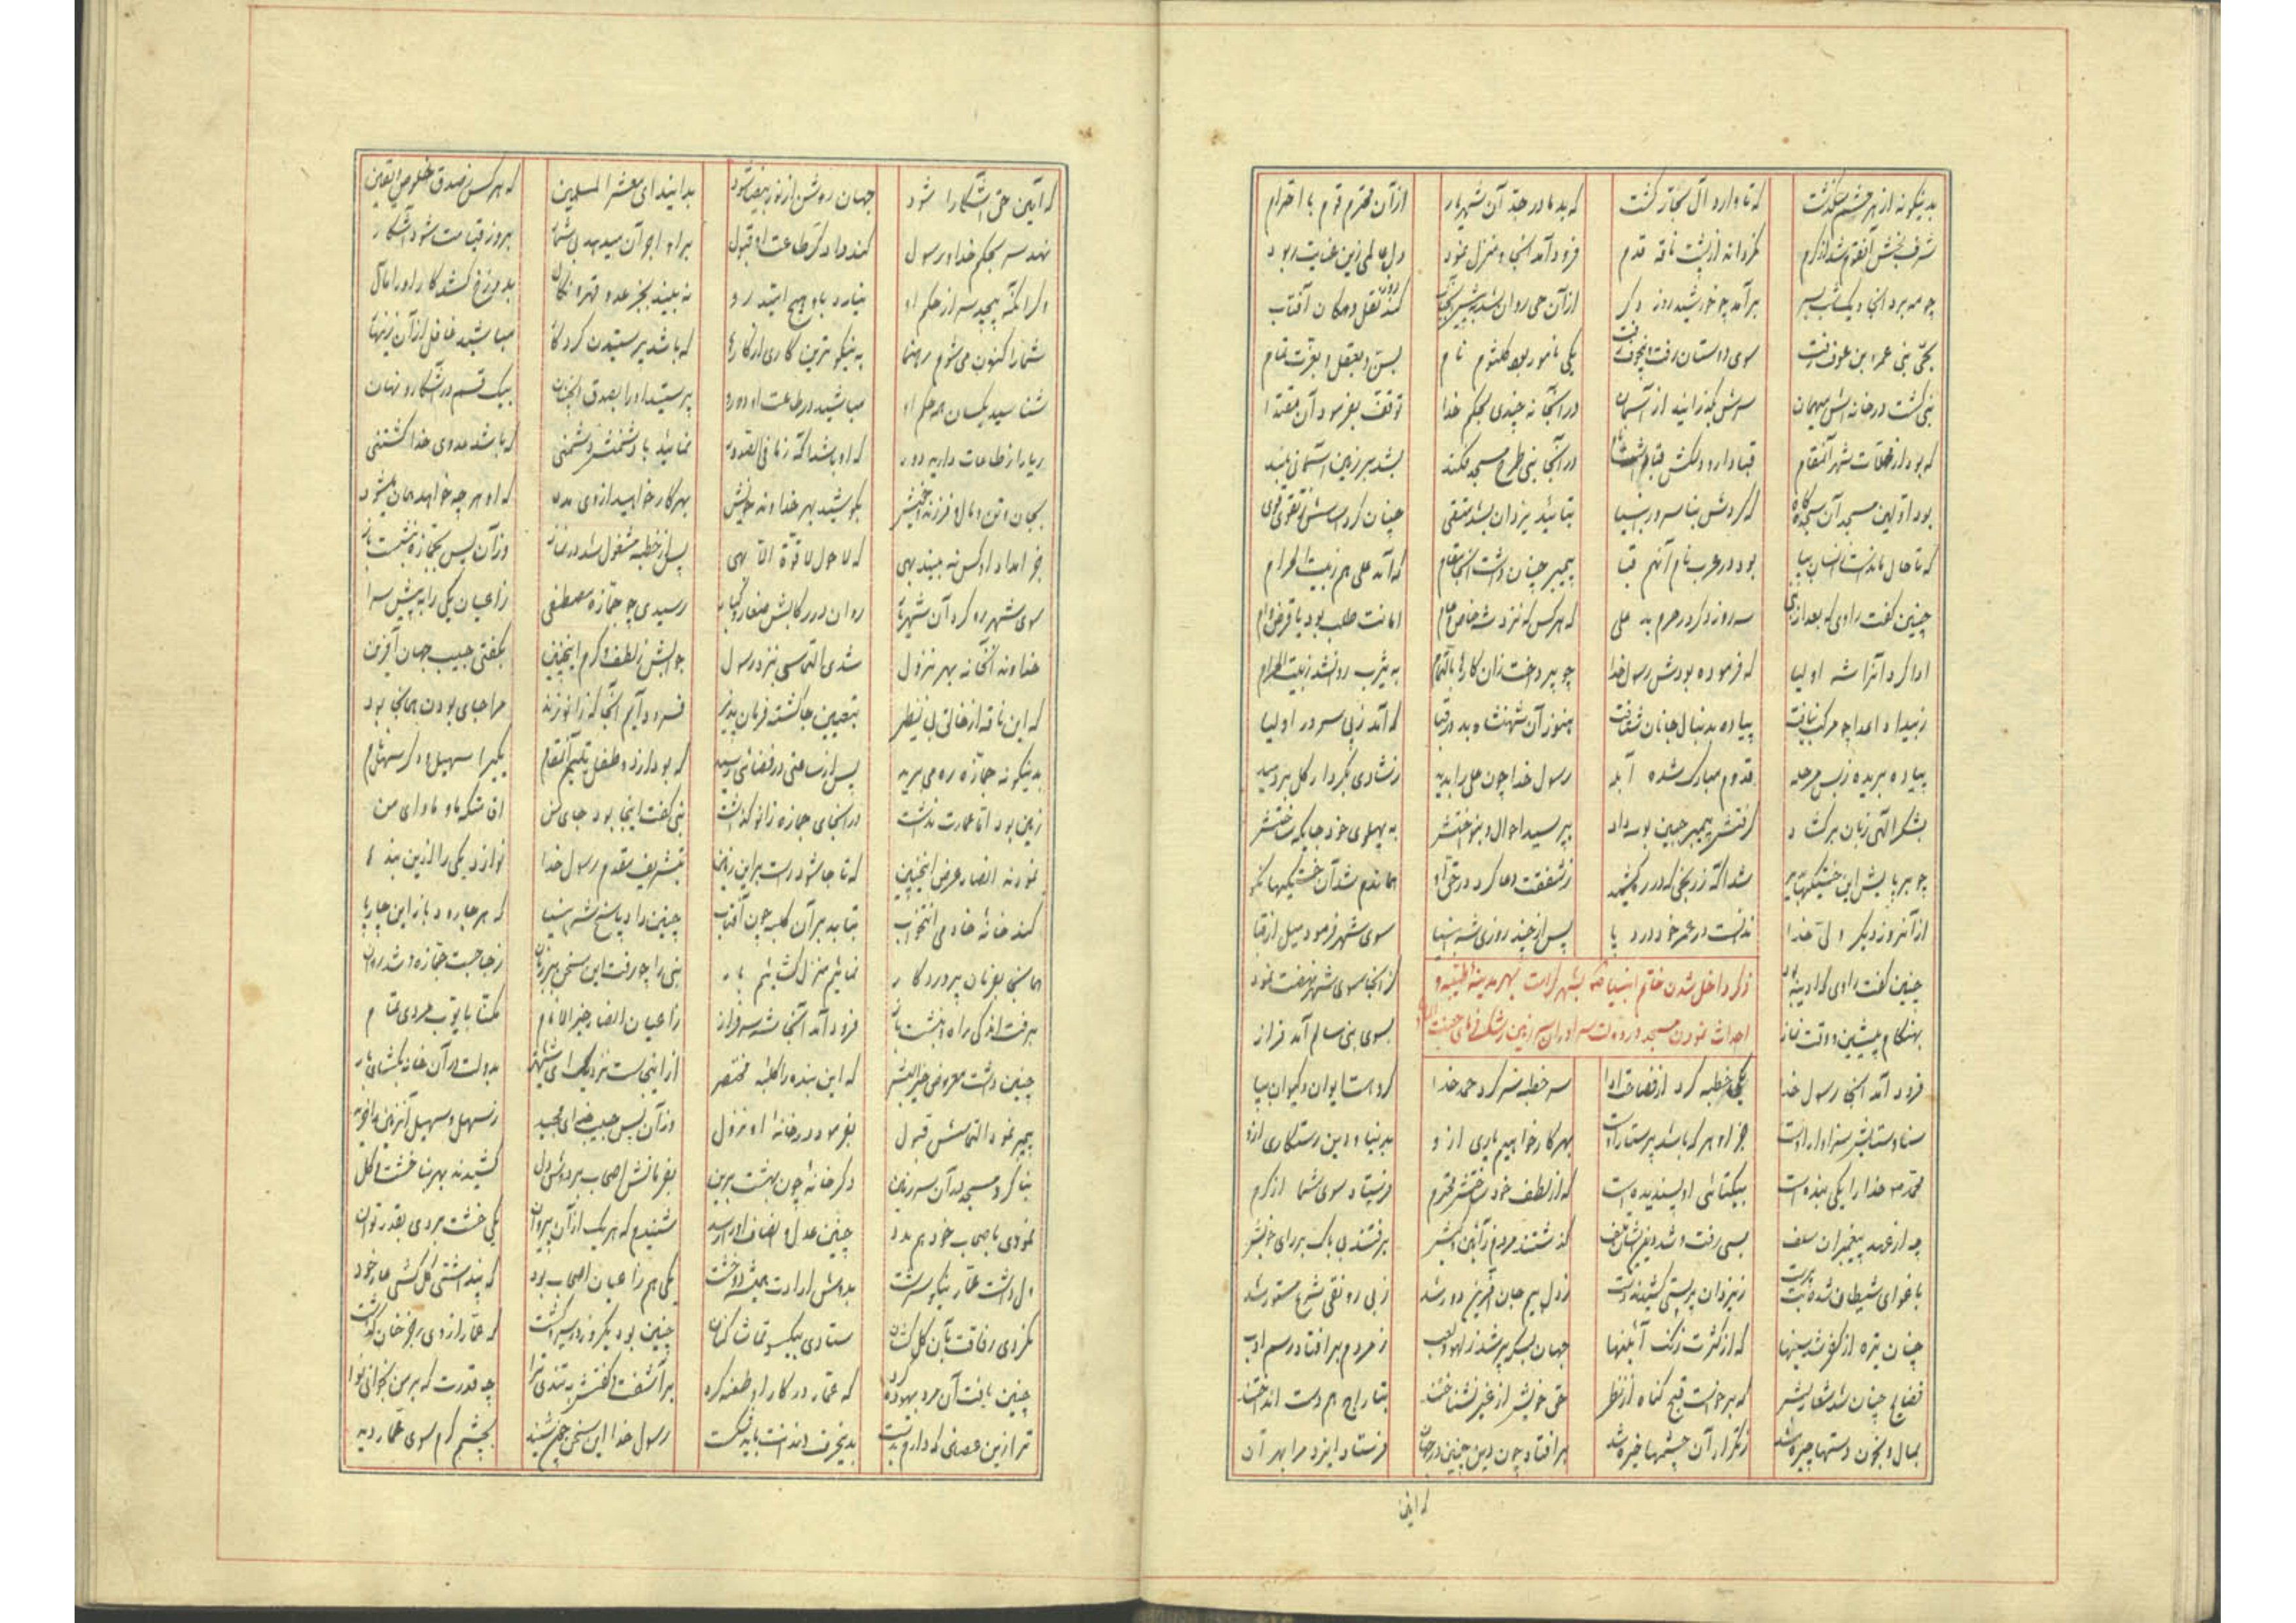 بدینگونه از هر حشم میگذشت که تا وارد آل نجار گشت که بد مادر جد آن شهریار از آن محترم قوم با احترام
شرف بخش آنقوم شد از کرم نگردانه از پشت ناقه قدم فرود آمد آنجا و منزل نمود دل عالمی زین عنایت ربود
چو مه برد آنجا و یکشب بسر برآمد چو خورشید روز دگر از آن حی روان شد کند نقل و مکان آفتاب
بحی بنی عمرو ابن عوف رفت سوی داستان رفت یکی نامور بود کلثوم نام بسن و بعقل و بعزت تمام
نبی گشت در خانه‌اش میهمان سرش بگذرانید از آسمان در آنجا نه چندی بحکم خدا توقف بفرمود آن مقتدا
که بود از محلات شهر آنمقام قبا دارد در آنجا نبی طرح مسجد فکند بشد بر زمین آسمانی بلند
بود اولین مسجد آن سجده‌گاه که کردش بنا سرور انبیا بتائید یزدان بشد متقی چنان کرد اساسش ز تقوی قوی
که تا حال مانداست بپا بود در عرب نام آنهم قبا پیمبر چنان داشت آنجا مقام که آمد علی هم ز بیت الحرام
چنین گفت راوی که بعد از نبی سه روز دگر در حرم بد علی که هر کس که نزد شه خاص و عام امانت طلب بود یا قرض و وام
ادا کرد آنرا شه اولیا که فرموده بودش رسول خدا چو پرداخت زان کارها بالتمام به یثرب روان شد ز بیت الحرام
ز بیداد اعدا چو مرکب نیافت پیاده بدنبال جانان شتافت هنوز آن شهنشاه بد در قبا که آمد ز پی سرور اولیا
پیاده بریده ز بس مرحله قدوم مبارک شده آبله رسول خدا چون علی را بدید ز شادی بکردار گل بردمید
بشکر الهی زبان برگشاد گرفتش پیمبر جبین بوسه داد بپرسید احوال و بنواختش به پهلوی خود جایگه ساختش
چو بر پایش این خستگیها شد آگه ز رنجی که در ره کشید ز شفقت دعا کرد در حق او هماندم شد آن خستگیها نکو
از آنروز دیگر ولی خدا ندانست در عمر خود درد پا پس از چند روزی شه انبیا سوی شهر فرمود میل از قبا
ذکر داخل شدن خاتم انبیا بشهر کرامت بهر مدینه طیبه و
احداث نمودن مسجد و دولت سرا در آن سرزمین رشک فرمای جنت
چنین گفت راوی که آدینه بود کز آنجا سوی شهر نهضت نمود
بهنگام پیشین و وقت نماز بسوی بنی سالم آمد فراز
فرود آمد آنجا رسول خدا یکی خطبه کرد از فصاحت ادا سر خطبه سر کرد حمد خدا کزو هست ایوان و کیوان بپا
سنا و ستایش سزاوار اوست جز او هر که باشد پرستار اوست بهر کار خواهیم یاری ازو بدنیا و دین رستگاری ازو
محمد مر خدا را یکی بنده است بیکتائی او پسندیده است که از لطف خود ساختش محترم فرستاد سوی شما از کرم
چه از عهد پیغمبران سلف بسی رفت و شد دین ایشان تلف گذشتند مردم ز آئین و کیش برفتند بی باک بر رای خویش
باغوای شیطان شده بت پرست ز یزدان پرستی کشیدند دست ز دل بیم جان آفرین دور شد ز بی رونقی شرع مستور شد
چنان تیره از کفر شد سینها که از کثرت زنگ آئینها جهان یکسر پر شد ز لهو و لعب ز مردم بر افتاد رسم ادب
فضایح چنان شد شعار بشر که برخواست قبح گناه از نظر حق خویش از غیر نشناختند بتاراج هم دست انداختند
بمال و بخون دستها چیره شد ز تکرار آن چشمها خیره شد بر افتاد چون دین چنین در جهان فرستاد ایزد مرا بهر آن
که آئین
که آئین حق آشکارا شود جهان روشن از نور بیضا شود بدانید ای معشر المسلمین که هر کس ز صدق و خلوص و یقین
نهد سر بحکم خدا و رسول کند داد گر طاعت او قبول برای او اجر آن میدهد بیشمار بروز قیامت شود آشکار
و گر آنکه پیچید سر از حکم او نیارد باو هیچ ایمند رو نه بیند بجز عدو قهر و نکال بدوزخ کشد کار او را مآل
شما را کنون می‌شوم رهنما به نیکوترین کاری از کارها که باشد پرستیدن کردگار مباشید غافل از آن زینهار
شناسید یکسان همه حکم او مباشید در طاعت او دورو پرستید او را بصدق بیک قسم در آشکار و نهان
ریا را ز طاعات دارید دور که او باشد آگه ز ما فی الصدور نمائید با دشمنش دشمنی که باشد عدوی خدا کشتنی
بجان و تن و مال و فرزند خویش بکوشید بهر خداوند خویش بهر کار خواهید از وی مدد که او هر چه خواهد همان میشود
جز امداد او کس نه بیند بهی که لا حول لا قوة الا بهی پس از خطبه مشغول شد در نماز وز آن پس بجمازه بنشست باز
سوی شهر رو کرد آن شهریار روان در رکابش صغار و کبار رسیدی چو جمازه مصطفی ز اعیان یکی را به پیش سرا
خداوند آنخانه بهر نزول شدی التماسی بنزد رسول جوابش ز لطف و کرم اینچنین بگفتی حبیب جهان آفرین
که این ناقه از خالق بی نظیر بتعیین جا گشته فرمان پذیر فرود آیم آنجا که زانو زند مرا جای بودن همانجا بود
بدینگونه جمازه ره می‌برید پس از ساعتی در فضائی رسید که بود از دو طفل یتیم آنمقام یکی را سهیل و دگر سهل نام
زمین بود اما عمارت نداشت در آنجای جمازه زانو گذاشت نبی گفت اینجا بود جای من اقامتگه و ماوای من
نمودند انصار عرض اینچنین که تا جا شود راست بر این زمین بتشریف مقدم رسول خدا نوازد یکی را ازین بندها
کند خانه خادمی انتخاب بتابد بر آن کلبه چون آفتاب چنین داد پاسخ شه انبیا که هر جا رود باز این چارپا
همانجا بفرمان پروردگار نمائیم منزل گشائیم بار نبی را چو رفت این سخن بر زبان ز جا جست جمازه و شد روان
برفت اندکی راه و بنشست باز فرود آمد آنجا شه سرفراز ز اعیان انصار خیر الانام مکنّا بایوب مردی تمام
چنین داشت معروض خیر البشر که این بنده را کلبه مختصر از اینجاست نزدیک ای شهریار بدولت در آن خانه بگشای بار
پیمبر نمود التماسش قبول بفرمود در خانه او نزول وز آن پس حبیب خدای مجید ز سهل و سهیل آنزمین را خرید
بنا کرد مسجد در آن سرزمین دگر خانه چون بهشت برین بفرمانش اصحاب بر دوش دل کشیدند بهر بنا خشت و گل
نمودی باصحاب خود هم مدد چنین عدل و انصاف او را رسد شنیدم که هر یک از آن پیروان یکی خشت بردی بقدر توان
ولی داشت عمار نیکو سرشت بدوش ارادت همیشه دو خشت یکی هم ز اعیان اصحاب بود که پنداشتی گل کشی عار خود
نکردی رفاقت بآن گل کشان ستادی بیکسو تماشا کنان چنین بود یکروز در سیر و گشت که عمار از وی
چنین یافت آن مرد بیهوده گرد که عمار در کار او طعنه کرد برآشفت و گفتش به تندی ترا چه قدرت که بر من
ترا زین عصائی که دارم بدست بدینحرف دندانت باید شکست رسول خدا این سخن چون شنید بچشم کرم سوی عمار دید